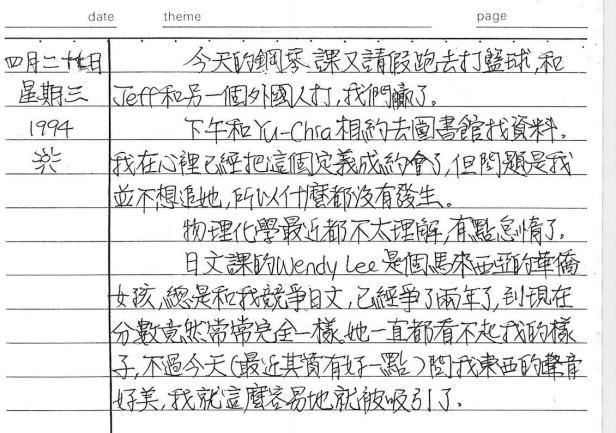 date theme page
四月二十七日
星期三
1994
今天的鋼琴課又請假跑去打籃球,和
Jeff和另一個外國人打,我們贏了。
下午和Yu-Chia相約去圖書館找資料。
我在心裡已經把這個定義成約會了,但問題是我
並不想追她,所以什麼都沒有發生。
物理化學最近都不太理解,有點怠惰了。
日文課的Wendy Lee是個馬來西亞的華僑
女孩,總是和我競爭日文,已經爭了兩年了,到現在
分數竟然常常完全一樣。她一直都看不起我的樣
子,不過今天(最近其實有好一點)問我東西的聲音
好美,我就這麼容易地就被吸引了。